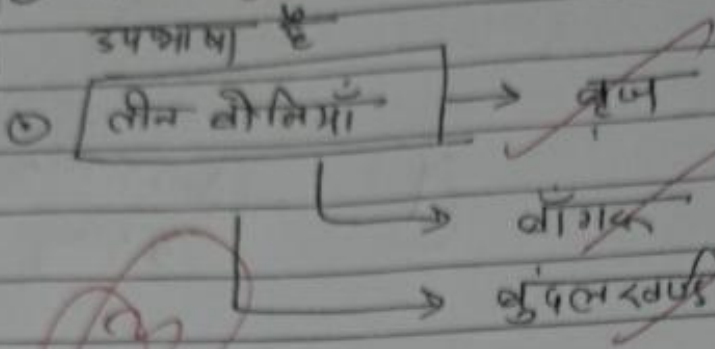 उपभाषा है
तीन बोलियाँ → बृज
→ बाँगरू
→ बुंदेलखण्ड